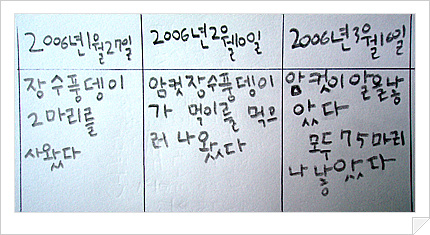 2006년1월27일
장수풍뎅이
2마리를
사왔다
2006년2월10일
암컷장수풍뎅이
가 먹이를 먹으
러 나왔다
2006년3월16일
암컷이 알을낳
았다
모두 75마리
나 낳았다